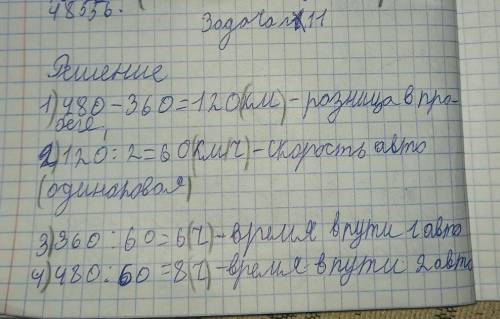 48556.
Задача №11
Решение
1) 480-360=120(км)-разница в про-
беге,
2) 120:2=60(км/ч)-скорость авто
(одинаровая)
3) 360:60=6(ч)-время в пути 1 авто
4) 480:60=8(ч)-время в пути 2 авто